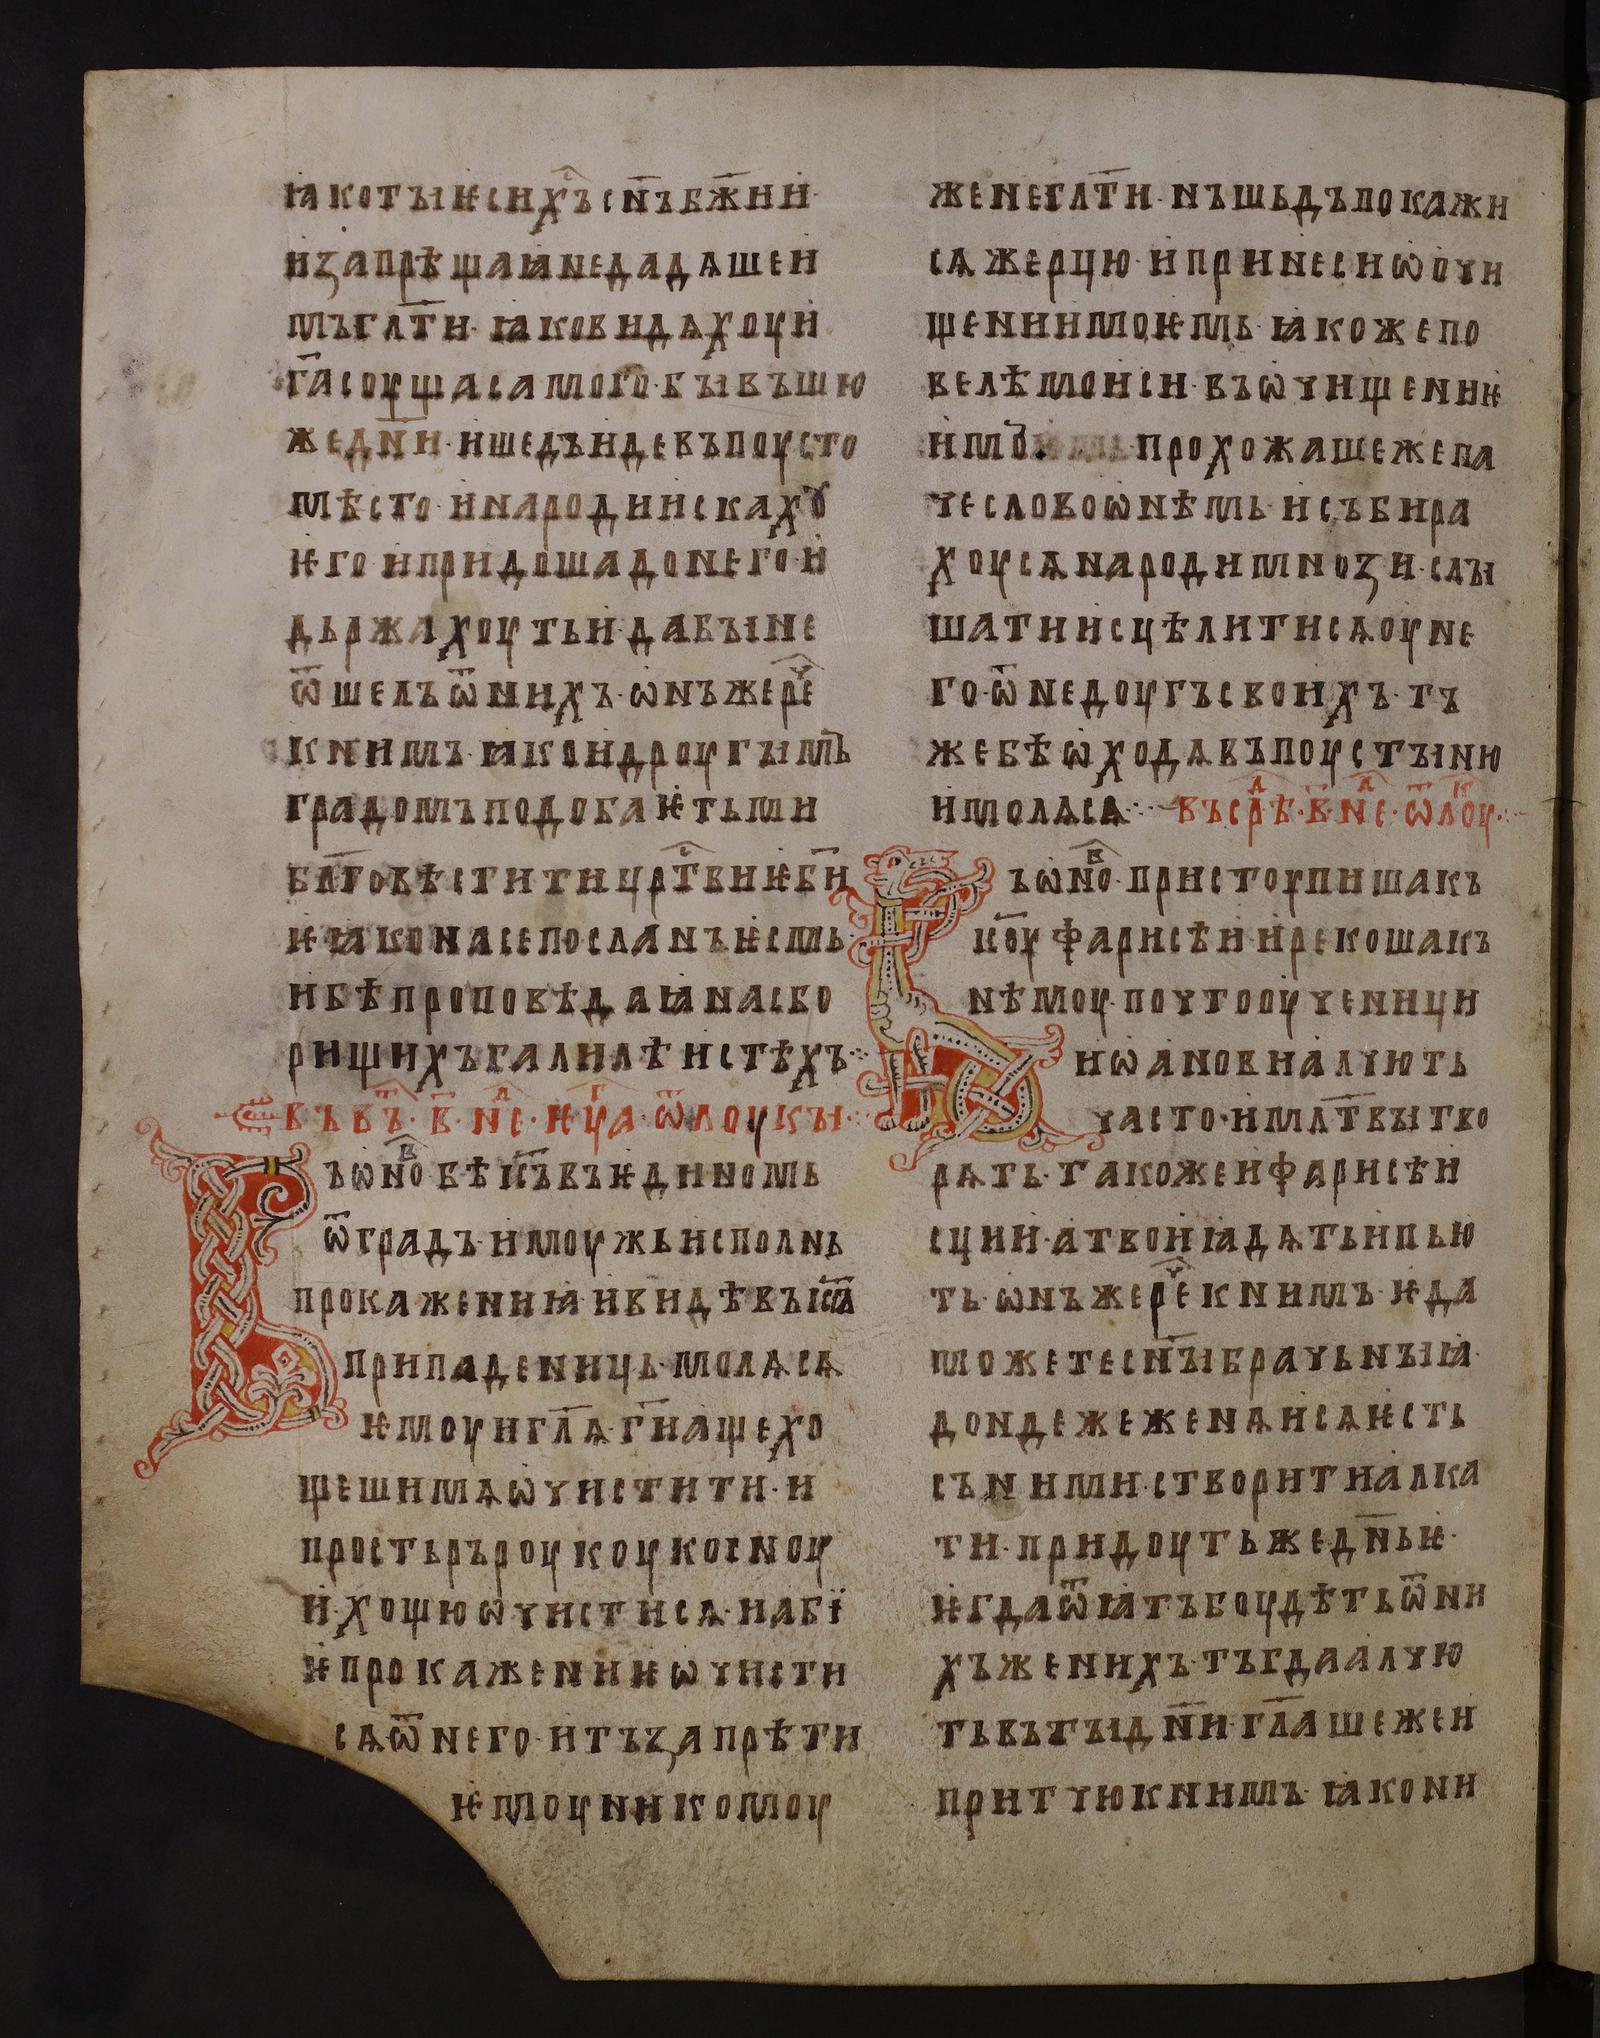 ꙗкотыѥсих҇ъсн҃ъбж҃ии·
изапрѣщаꙗнедадѧшеи
мъгл҃ти·ꙗковидѧхоуи
г҃асоущасамого·бывъшю
жедн҃и·ишедъидевъпоусто
мѣсто·инародиискахꙋ
ѥгоипридошадонего·и
дьржахоутьи·дабыне
ѿшелъѿнихъ·ѡнъжереч҇е
книмъ·ꙗкоидроугымъ
градомъподобаѥтьми
бл҃говѣститицрⷭ҇твиѥби҃
ѥꙗконасепосланъѥсмь·
ибѣпроповѣдаꙗнасбо
рищихъгалилѣистѣхъ··
въвт҇ъ·в҃·нⷣе·ѥуⷢ҇а·ѿлоукы·
Въѡноⷡ҇бѣіс҃ъвъѥдиномь
ѿградъ·имоужьисполнь
прокажениꙗивидѣвъіс҃а
припаденицьмолѧсѧ
ѥмоуигл҃ѧ·г҃иащехо
щешимѧѡчистити·и
простьръроукоукосноу
и·хощюѡчистисѧ·иабї
ѥпрокажениѥѡчисти
сѧѿнего·итъзапрѣти
ѥмоуникомоу
женегл҃ти·нъшьдъпокажи
сѧжерцю·ипринесиѡочи
щениимоѥмь·ꙗкожепо
велѣмоиси·въѡчищениѥ
имъ·прохожашежепа
чесловоѡнѣмь·исъбира
хоусѧнародимнози·слы
шатииицѣлитисѧоуне
го·ѿнедоугъсвоихъ·тъ
жебѣѡходѧвъпоустыню
имолѧсѧ··въсрⷣѣ·в҃·нⷣе·ѿлоуⷦ҇·
Въѡноⷡ҇·пристоупишакъ
іс҃оуфарисѣиирекошакъ
нѣмоу·почтооученици
иѡановиалчють
часто·имлт҃вытво
рѧть·такожеифарисѣи
сции·атвоиꙗдѧтьипью
ть·ѡнъжереч҇екнимъ·ѥда
можетесн҃ыбрачьныꙗ·
дондежеженѧисѧѥсть
съними·створитиалка
ти·придоутьжедн҃ьѥ·
ѥгдаѿꙗтъбоудѣтьѿни
хъженихъ·тъгдаалчю
тьвътыдн҃и·гл҃ашежеи
притчюкнимъ·ꙗкони